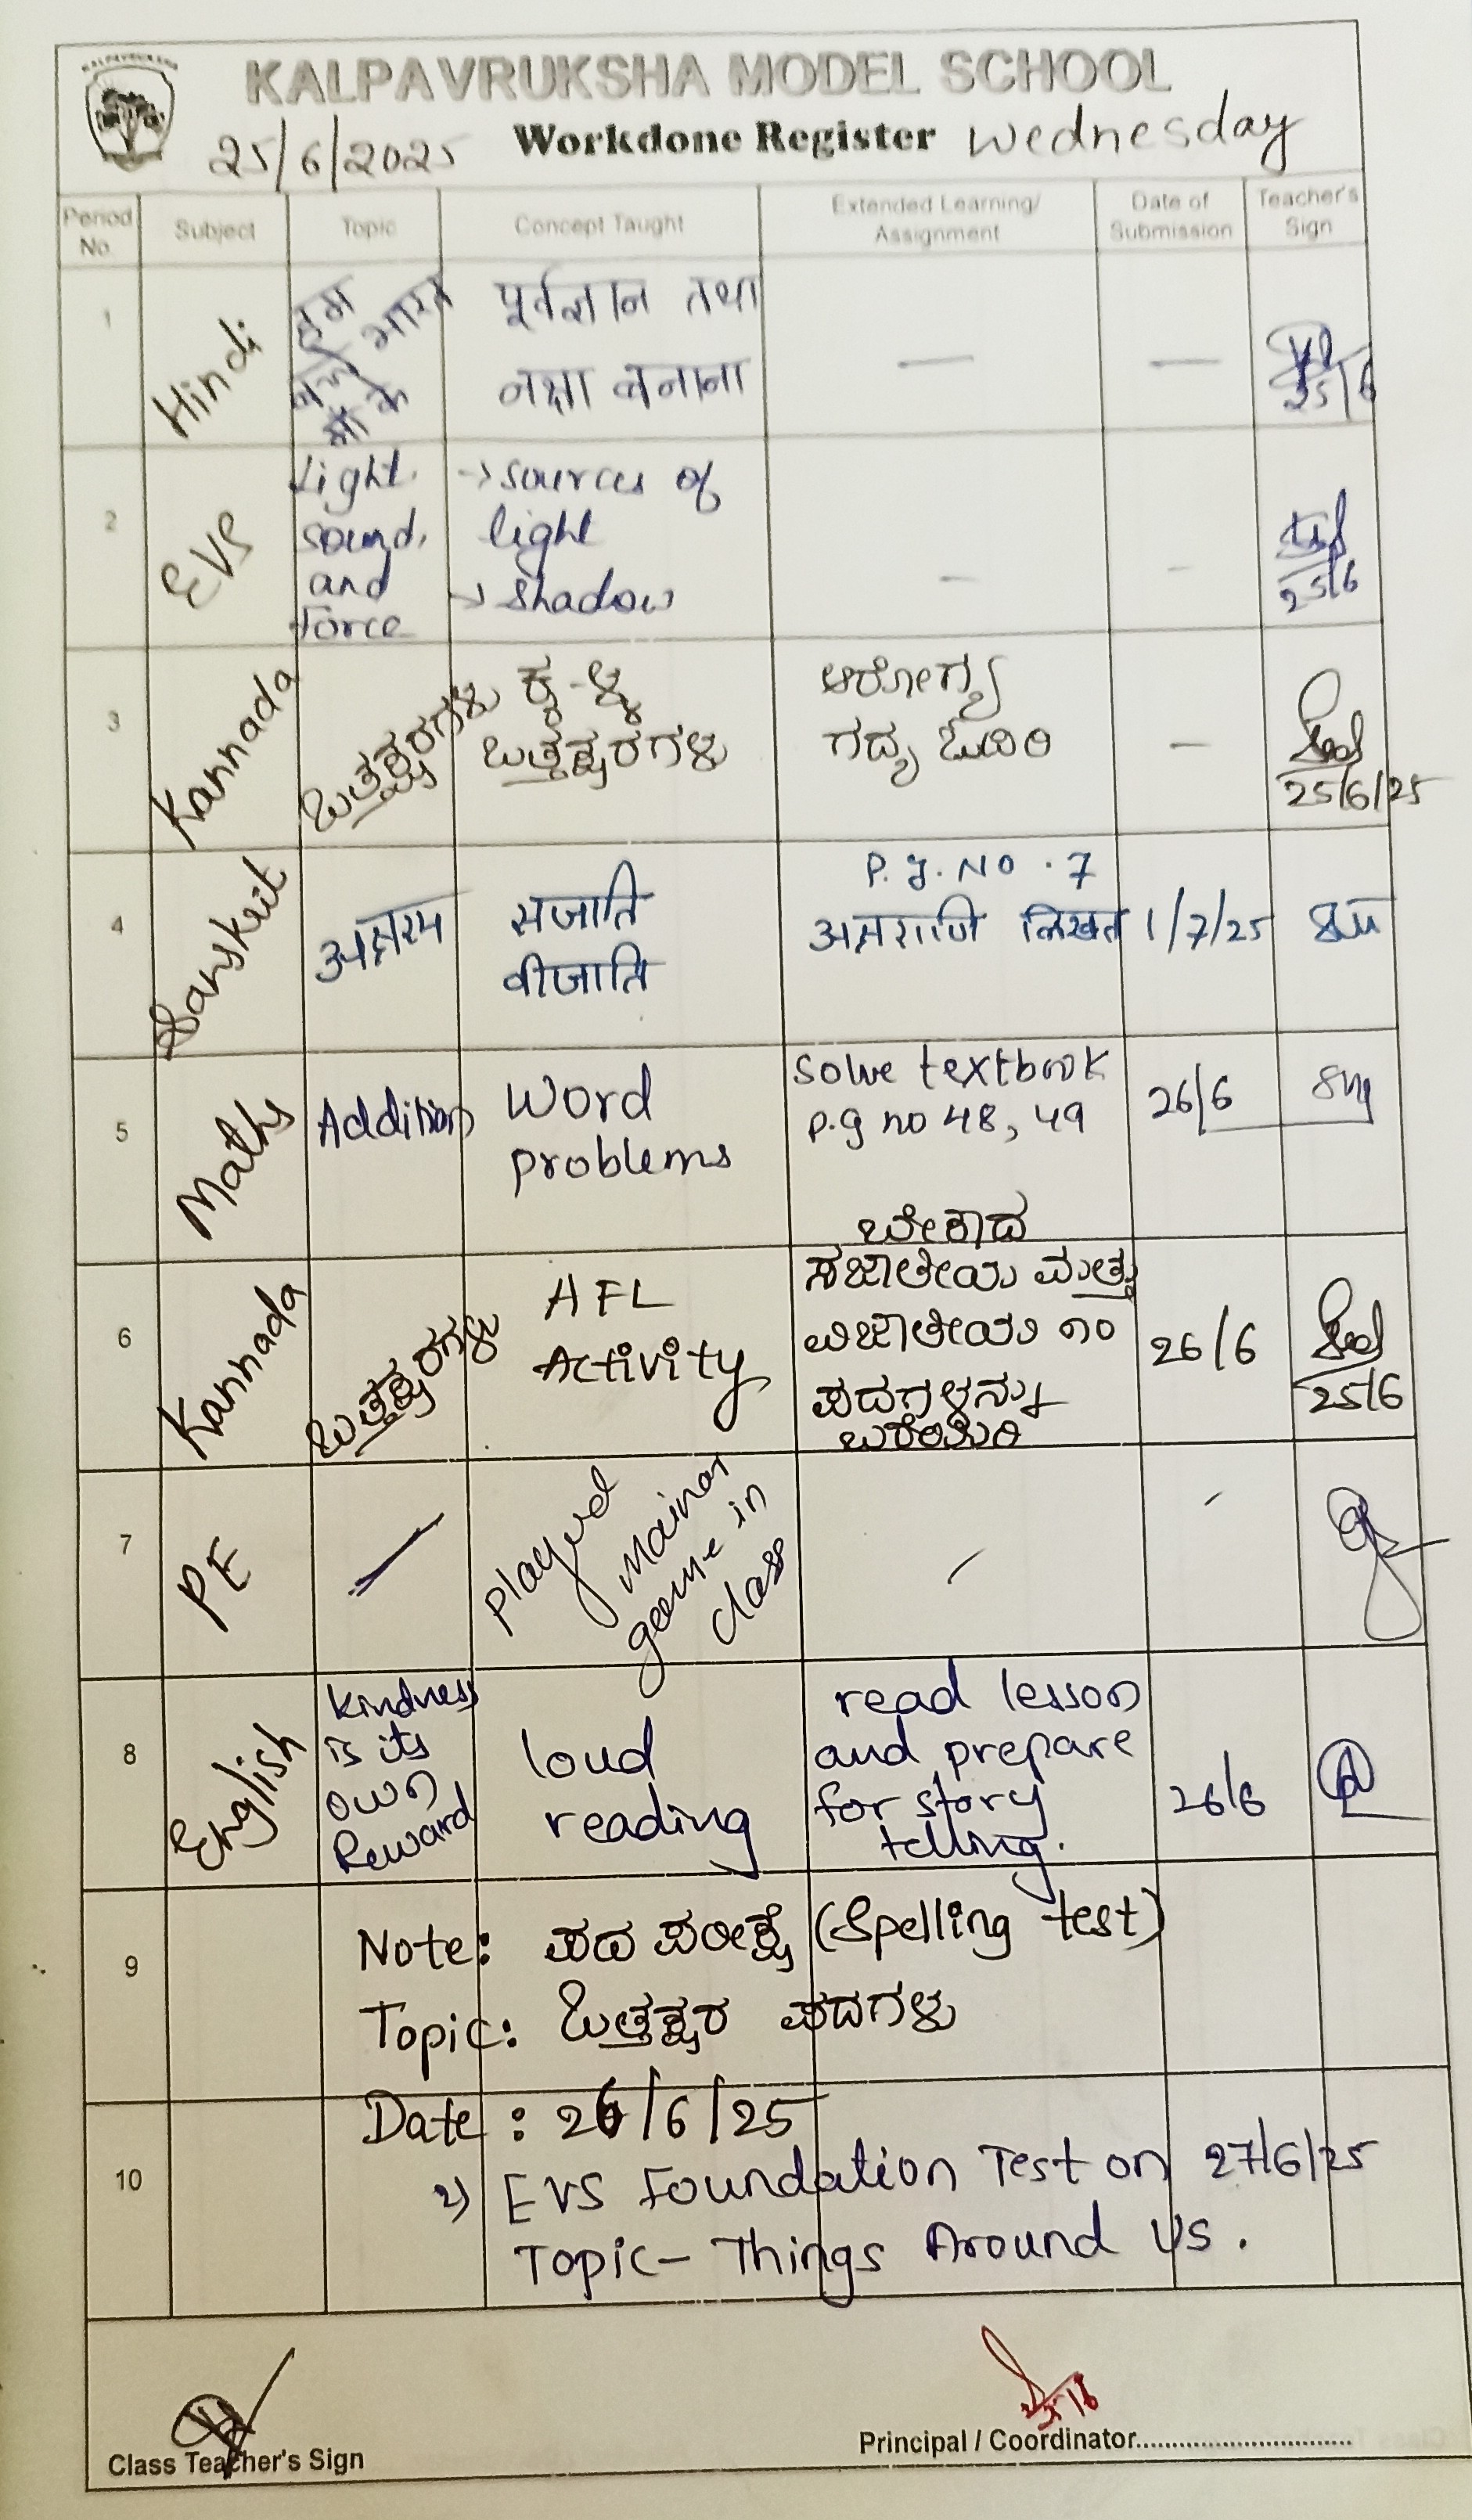 KALPAVRUKSHA
KALPAVRUKSHA MODEL SCHOOL
25/6/2025 Workdone Register Wednesday
Period No. Subject Topic Concept Taught Extended Learning/ Assignment Date of Submission Teacher's Sign
1 Hindi हम भारत के पूर्वज्ञान तथा
नक्षा बनाना — —
25/6
2 EVS Light, sound, and Force → sources of
light
→ shadow - -
25/6
3 Kannada ಒತ್ತಕ್ಷರಗಳು ಕ್ಕ-ಳ್ಳ ಆರೋಗ್ಯ
ಒತ್ತಕ್ಷರಗಳು ಗದ್ಯ ಓದಿರಿ —
25/6/25
4 Sanskrit अक्षरम सजाति
वीजाति P.g. NO . 7
अक्षराणि लिखत 1/7/25
5 Maths Addition Word
problems Solve textbook
p.g no 48, 49 26/6
6 Kannada ಒತ್ತಕ್ಷರಗಳು AFL
Activity ಬೇಕಾದ
ಸಜಾತೀಯ ಮತ್ತು
ವಿಜಾತೀಯ ೧೦
ಪದಗಳನ್ನು
ಬರೆಯಿರಿ 26/6
25/6
7 PE — Played
in
class - -
8 English Kindness
is its
own
Reward loud
reading read lesson
and prepare
for story
telling. 26/6
9 Note: ಪದ ಪರೀಕ್ಷೆ (Spelling test)
Topic: ಒತ್ತಕ್ಷರ ಪದಗಳು
Date : 26/6/25
10 2) EVS Foundation Test on 27/6/25
Topic- Things Around Us.
Class Teacher's Sign
Principal / Coordinator..............................